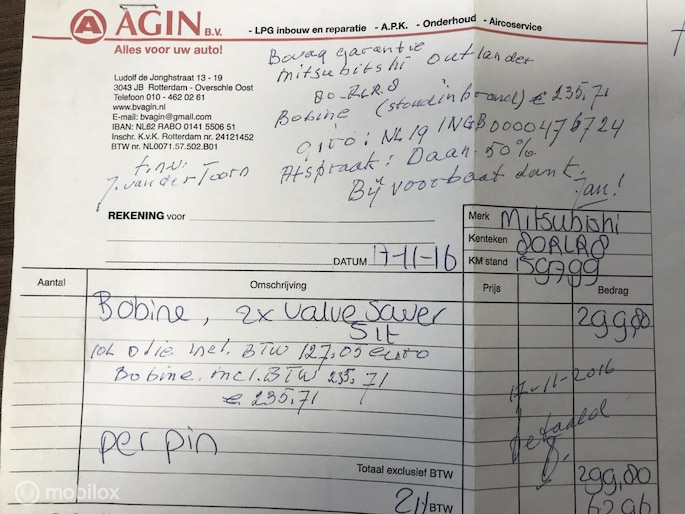 AGIN B.V.
- LPG inbouw en reparatie - A.P.K. - Onderhoud - Aircoservice
Alles voor uw auto!
Ludolf de Jonghstraat 13 - 19
3043 JB Rotterdam - Overschie Oost
Telefoon 010 - 462 02 61
www.bvagin.nl
E-mail: bvagin@gmail.com
IBAN: NL62 RABO 0141 5506 51
Inschr. K.v.K. Rotterdam nr. 24121452
BTW nr. NL0071.57.502.B01
t.n.v.
J. van der Toorn
Bovag garantie
mitsubitshi outlander
80-RLR8
Bobine (stond in brand) € 235,71
giro: NL19 INGB 0000476724
Afspraak: Daan 50%
Bij voorbaat dank
Jan!
REKENING voor
DATUM 17-11-16
Merk Mitsubishi
Kenteken 80RLR8
KM stand 159799
Aantal Omschrijving Prijs Bedrag
Bobine, 2x Valve Saver 299,80
5lt
10L olie incl. BTW 127,05 euro
Bobine incl. BTW 235,71
€ 235,71
17-11-2016
betaald
per pin
Totaal exclusief BTW 299,80
21% BTW 62,96
mobilox